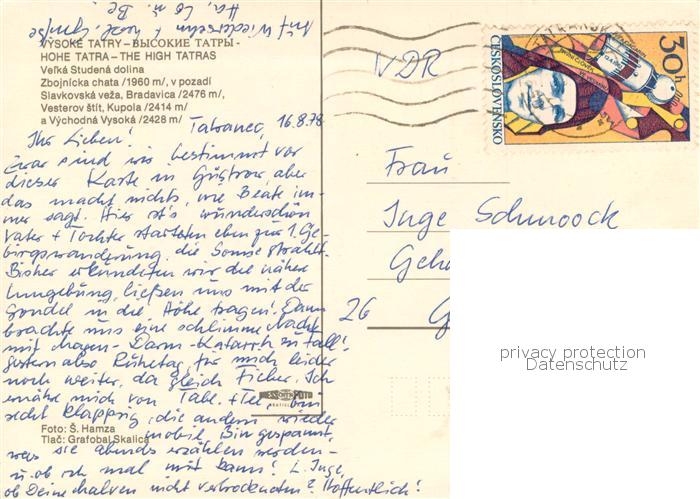 Auf Wiedersehn + herzl. Grüße
Ha, Co u. Be
VYSOKÉ TATRY – ВЫСОКИЕ ТАТРЫ -
HOHE TATRA – THE HIGH TATRAS
Veľká Studená dolina
Zbojnícka chata /1960 m/, v pozadí
Slavkovská veža, Bradavica /2476 m/,
Vesterov štít, Kupola /2414 m/
a Východná Vysoká /2428 m/
Tatranec, 16.8.78
Ihr Lieben!
Zwar sind wir bestimmt vor
dieser Karte in Güstrow aber
das macht nichts, wie Beate im-
mer sagt. Hier ist's wunderschön
Vater + Tochter starteten eben zur 1. Ge-
birgswanderung, die Sonne strahlt.
Bisher erkundeten wir die nähere
Umgebung, ließen uns mit der
Gondel in die Höhe tragen! Dann
brachte uns eine schlimme Nacht
mit Magen-Darm-Katarrh zu Fall!
Gestern also Ruhetag, für mich leider
noch weiter, da gleich Fieber. Ich
ernähre mich von Tabl. + Tee, bin
recht klapprig, die andern wieder
mobil. Bin gespannt,
was sie abends erzählen werden –
u. ob ich mal mit kann! L. Inge,
ob Deine Malven nicht vertrockneten? Hoffentlich!
PRESSFOTO
Foto: Š. Hamza
Tlač: Grafobal Skalica
NDR
ČESKOSLOVENSKO
30h
Frau
Inge Schmoock
Geh
26 G
privacy protection
Datenschutz